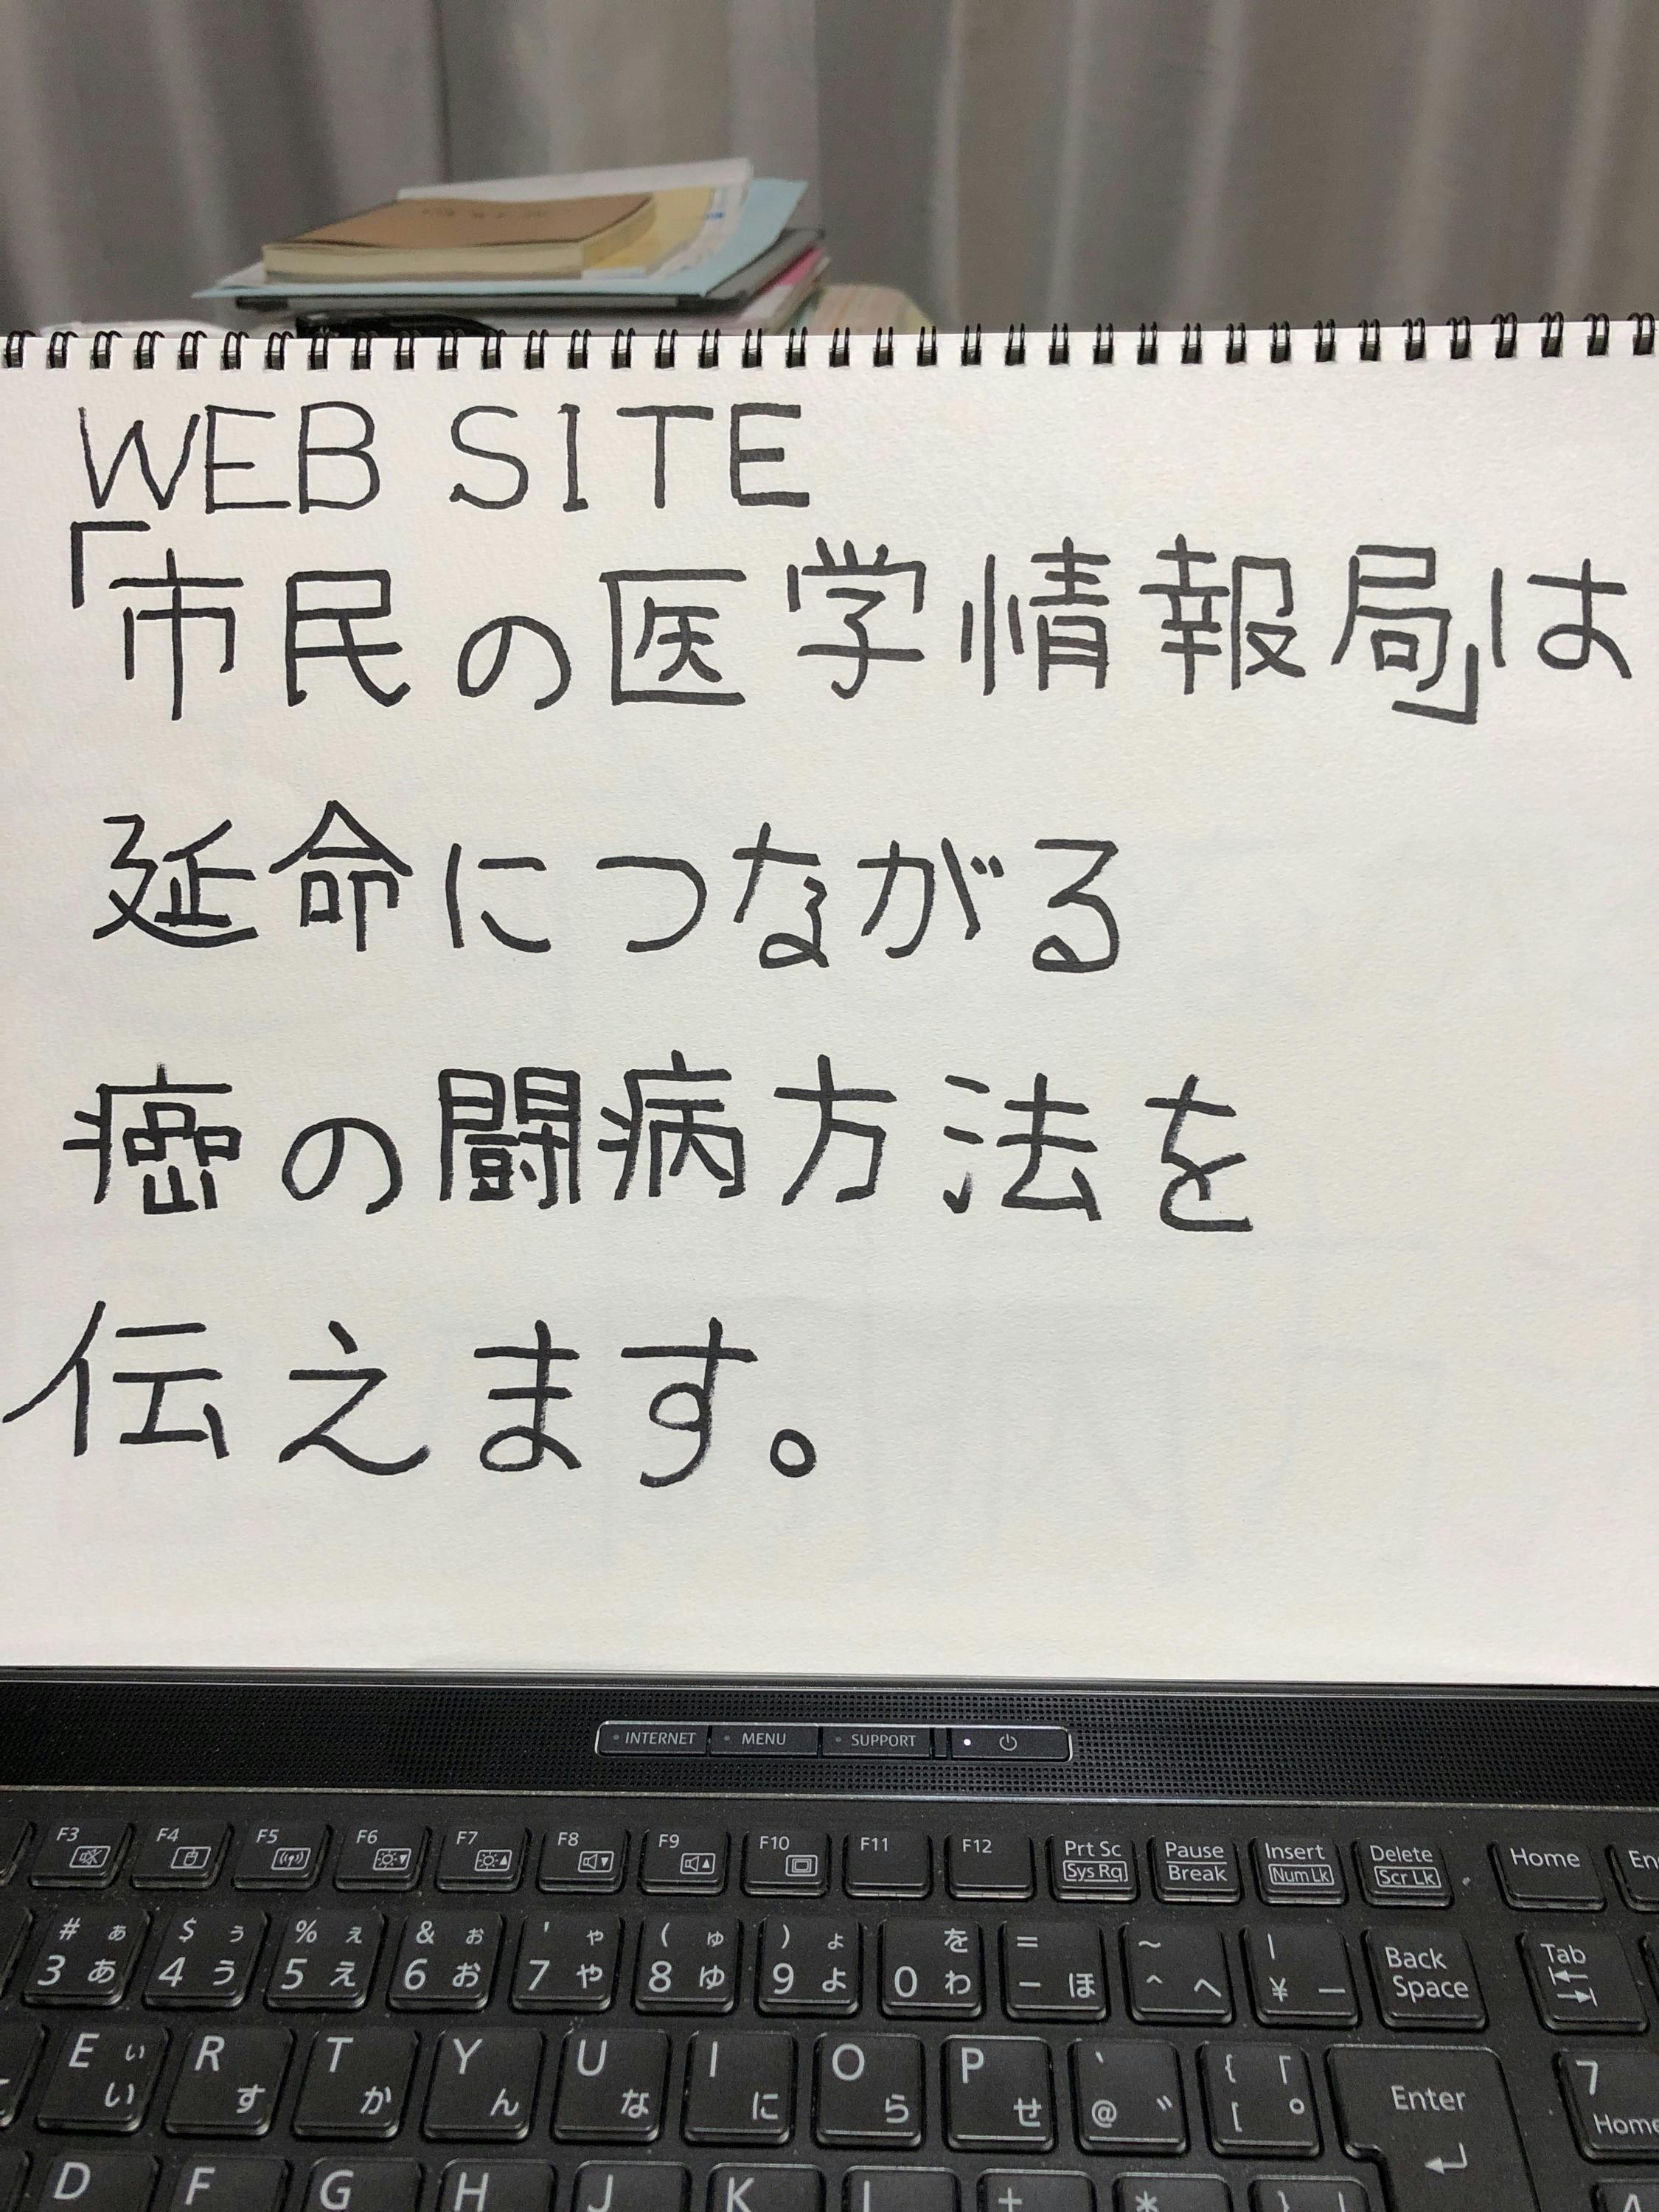 WEB SITE
「市民の医学情報局」は
延命につながる
癌の闘病方法を
伝えます。
INTERNET MENU SUPPORT
F3 F4 F5 F6 F7 F8 F9 F10 F11 F12 Prt Sc Sys Rq Pause Break Insert Num Lk Delete Scr Lk Home
# ぁ 3 あ $ ぅ 4 う % ぇ 5 え & ぉ 6 お ' ゃ 7 や ( ゅ 8 ゆ ) ょ 9 よ を 0 わ = - ほ ~ ^ へ | ¥ ー Back Space Tab
E ぃ い R す T か Y ん U な I に O ら P せ ` @ ゛ { 「 [ ゜ Enter 7 Home
D F G H J K L + * }